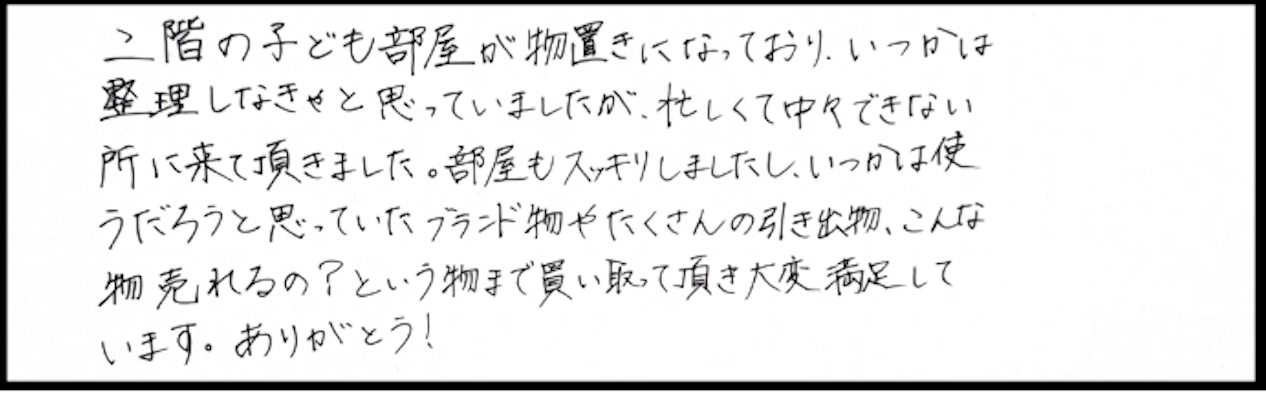 二階の子ども部屋が物置きになっており、いつかは
整理しなきゃと思っていましたが、忙しくて中々できない
所に来て頂きました。部屋もスッキリしましたし、いつかは使
うだろうと思っていたブランド物やたくさんの引き出物、こんな
物売れるの？という物まで買い取って頂き大変満足して
います。ありがとう！